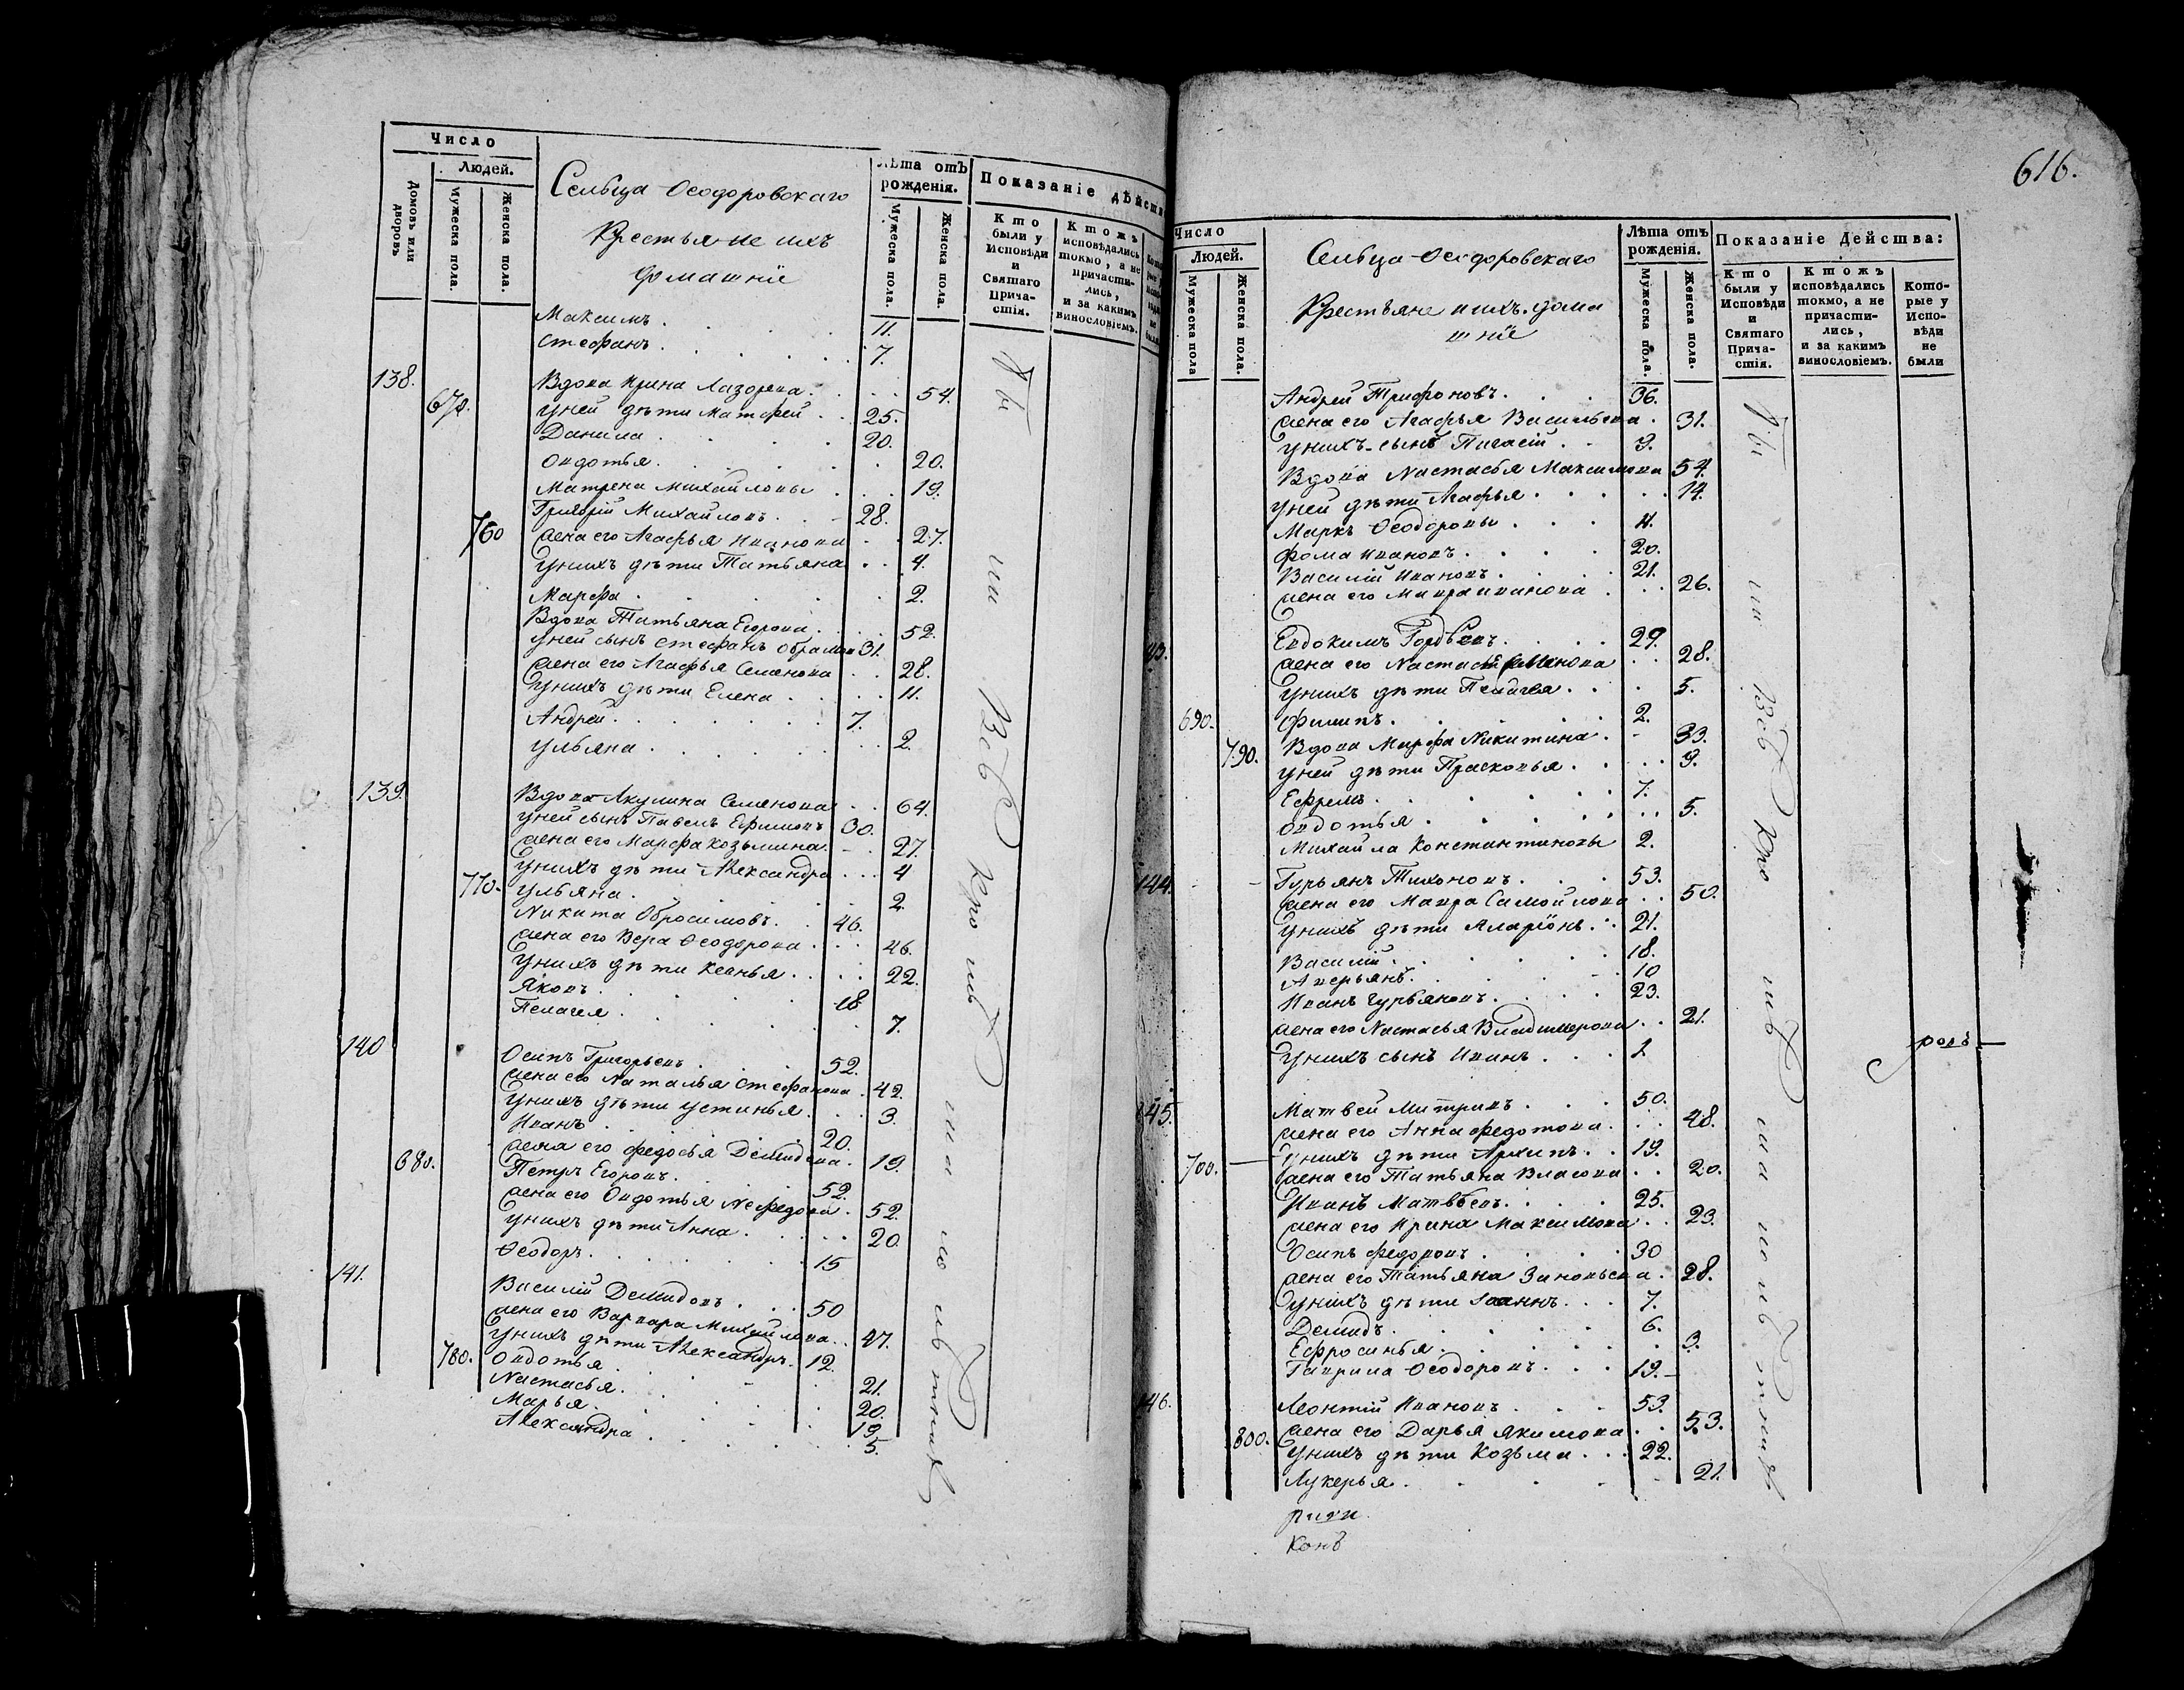 Число
Людей.
Домовъ или дворовъ
Мужеска пола.
Женска пола.
Сельца Ѳеодоровскаго
Крестьяне ихъ
домашніе
Лѣта отъ рожденія.
Мужеска пола.
Женска пола.
Показаніе дѣйств
Кто были у Исповѣди и Святаго Причастія.
Ктожъ исповѣдались токмо, а не причастились, и за какимъ винословіемъ.
Максимъ . 11.
Стефанъ . 7.
138. Вдова Ирина Лазорева . 54.
670. у ней дѣти Матфей . 25.
Данила . 20.
Овдотья . 20.
Матрена Михайловы . 19.
Григорій Михайловъ . 28.
760 жена его Агафья Иванова . 27.
у нихъ дѣти Татьяна . 4.
Марфа . 2.
Вдова Татьяна Егорова . 52.
у ней сынъ Стефанъ Обрамов 31.
жена его Агафья Семенова . 28.
у нихъ дѣти Елена . 11.
Андрей . 7.
Ульяна . 2.
139. Вдова Акулина Семенова . 64.
у ней сынъ Павелъ Ефимовъ 30.
жена его Марфа Козьмина . 27.
у нихъ дѣти Александра . 4
770. Ульяна . 2.
Никита Обросимовъ . 46.
жена его Вера Ѳеодорова . 46.
у нихъ дѣти Ксенья . 22.
Яковъ . 18
Пелагея . 7.
140 Осипъ Григорьевъ . 52.
жена его Наталья Стефанова . 42.
у нихъ дѣти Устинья . 3.
Иванъ . 20.
жена его Федосья Демидова . 19.
680. Петръ Егоровъ . 52.
жена его Овдотья Нефедова . 52.
у нихъ дѣти Анна . 20.
Ѳеодоръ . 15
141. Василій Демидовъ . 50
жена его Варвара Михайлова . 47.
у нихъ дѣти Александръ . 12.
780. Овдотья . 21.
Настасья . 20.
Марья . 19.
Александра . 5.
616.
Число
Людей.
Мужеска пола
Женска пола.
Сельца Ѳеодоровскаго
Крестьяне ихъ дома
шніе
Лѣта отъ рожденія.
Мужеска пола.
Женска пола.
Показаніе Действа:
Кто были у Исповѣди и Святаго Причастія.
Ктожъ исповѣдались токмо, а не причастились, и за какимъ винословіемъ.
Которые у Исповѣди не были
Андрей Трифоновъ . 36.
жена его Агафья Васильева . 31.
у нихъ сынъ Пигасій . 3.
Вдова Настасья Максимова 54.
у ней дѣти Агафья . 14.
Маркъ Ѳеодоровы . 11.
Фома Ивановъ . 20.
Василій Ивановъ . 21.
жена его Мавра Иванова . 26.
43. Евдокимъ Гордѣевъ . 29.
жена его Настасья . 28.
у нихъ дѣти Пелагея . 5.
690. Филипъ . 2.
790. Вдова Марфа Никитина . 33.
у ней дѣти Прасковья . 9.
Ефремъ . 7.
Овдотья . 5.
Михайла Константиновы 2.
144. Гурьянъ Тихоновъ . 53.
жена его Мавра Самойлова . 50.
у нихъ дѣти Аларіонъ . 21.
Василій . 18.
Аверьянъ . 10
Иванъ Гурьяновъ . 23.
жена его Настасья Владимерова . 21.
у нихъ сынъ Иванъ . 1
145. Матвей Митривъ . 50.
жена его Анна Федотова . 48.
700. у нихъ дѣти Архипъ . 19.
жена его Татьяна Власова . 20.
Иванъ Матвѣевъ . 25.
жена его Ирина Максимова . 23.
Осипъ Федоровъ . 30
жена его Татьяна Зиновьева . 28.
у нихъ дѣти Іоаннъ . 7.
Демидъ . 6.
Ефросинья . 3.
Гаврила Ѳеодоровъ . 19.
146. Леонтій Ивановъ . 53.
800. жена его Дарья Якимова . 53.
у нихъ дѣти Козьма . 22.
Лукерья . 21.